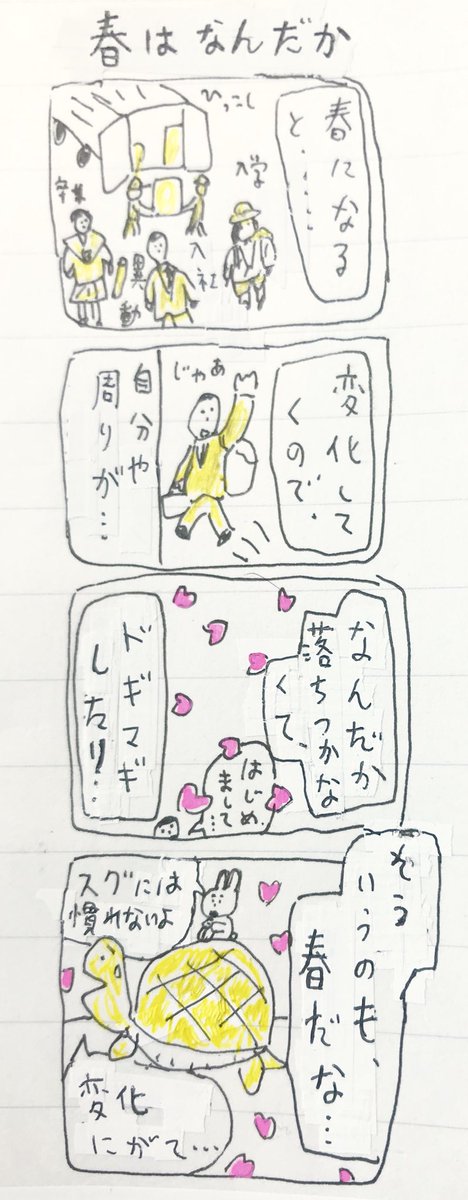 春はなんだか
春になる
と……
ひっこし
入学
入社
異動
卒業
変化して
くので、
じゃあ
自分や
周りが…
なんだか
落ちつかな
くて、
はじめ
まして…
ドギマギ
したり…
そう
いうのも、
春だな…
スグには
慣れないよ
変化
にがて…